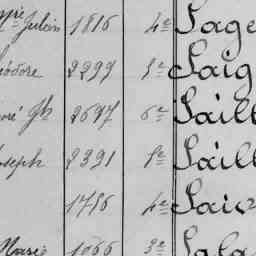 Julien 1816 4e Sage
éodore 2299 5e Saig
oré Jh 2697 6e Saill
oseph 2391 5e Saill
1716 4e Sain
Marie 1066 3e Sala